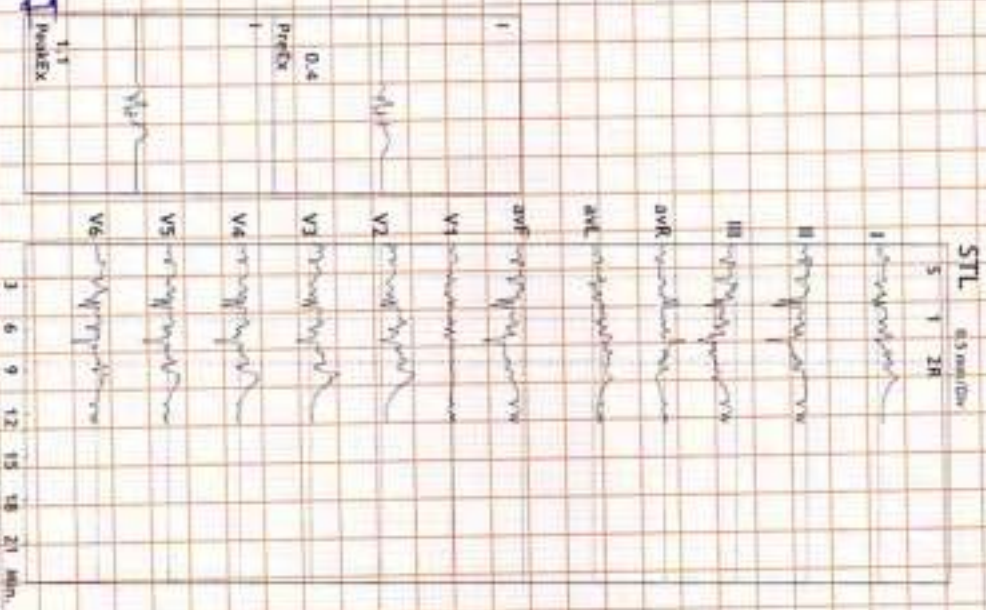 STL 0.5 mm/Div
S 1 2R
I
II
III
avR
avL
avF
V1
V2
V3
V4
V5
V6
3 6 9 12 15 18 21 Min.
I
0.4
PreEx
I
1.1
PeakEx